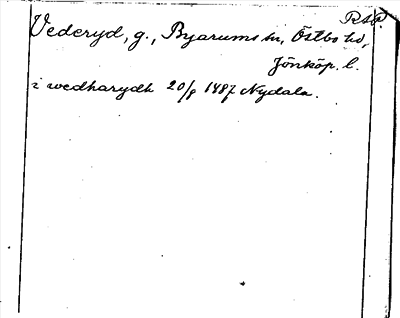 RAp.
Vederyd, g., Byarums sn, Östbo hd,
Jönköp. l.
i wedharydh 20/8 1487 Nydala.